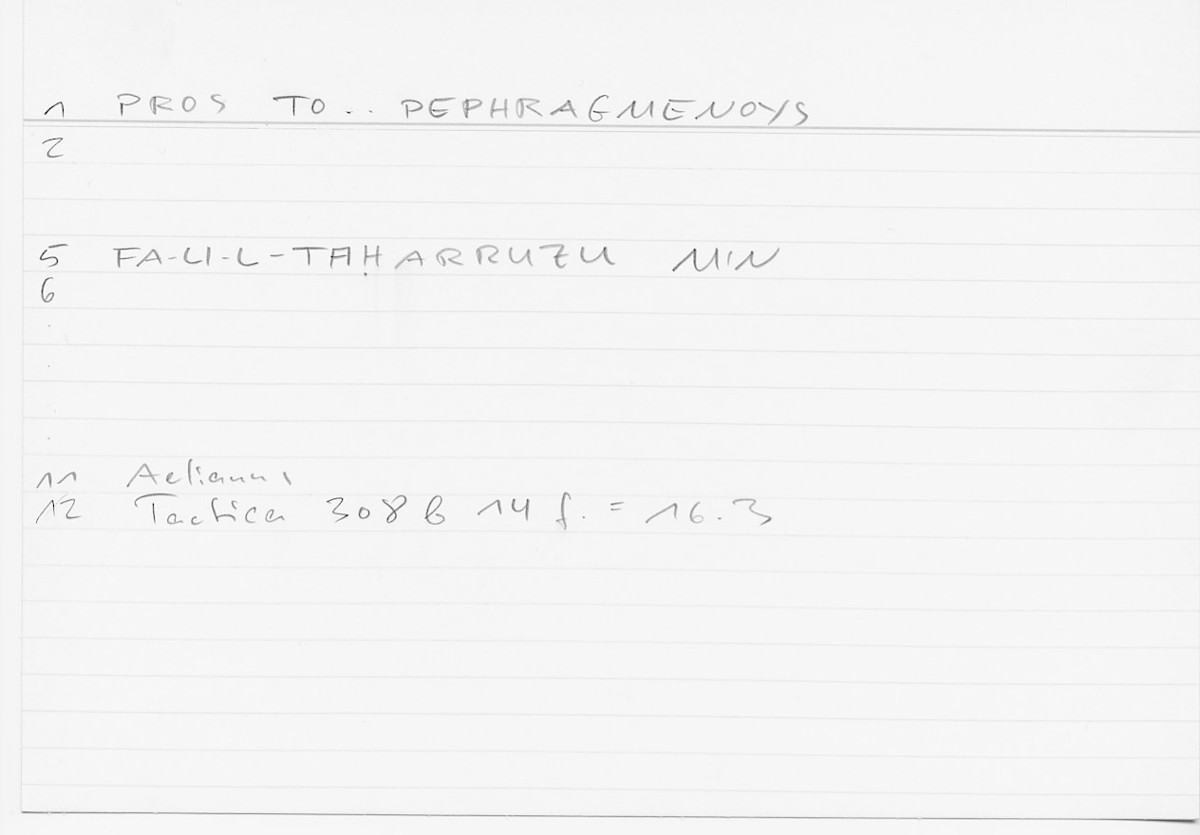 1 PROS TO.. PEPHRAGMENOYS
2
5 FA-LI-L-TAḤARRUZU MIN
6
.
.
.
11 Aelianus
12 Tactica 308 b 14 f. = 16.3